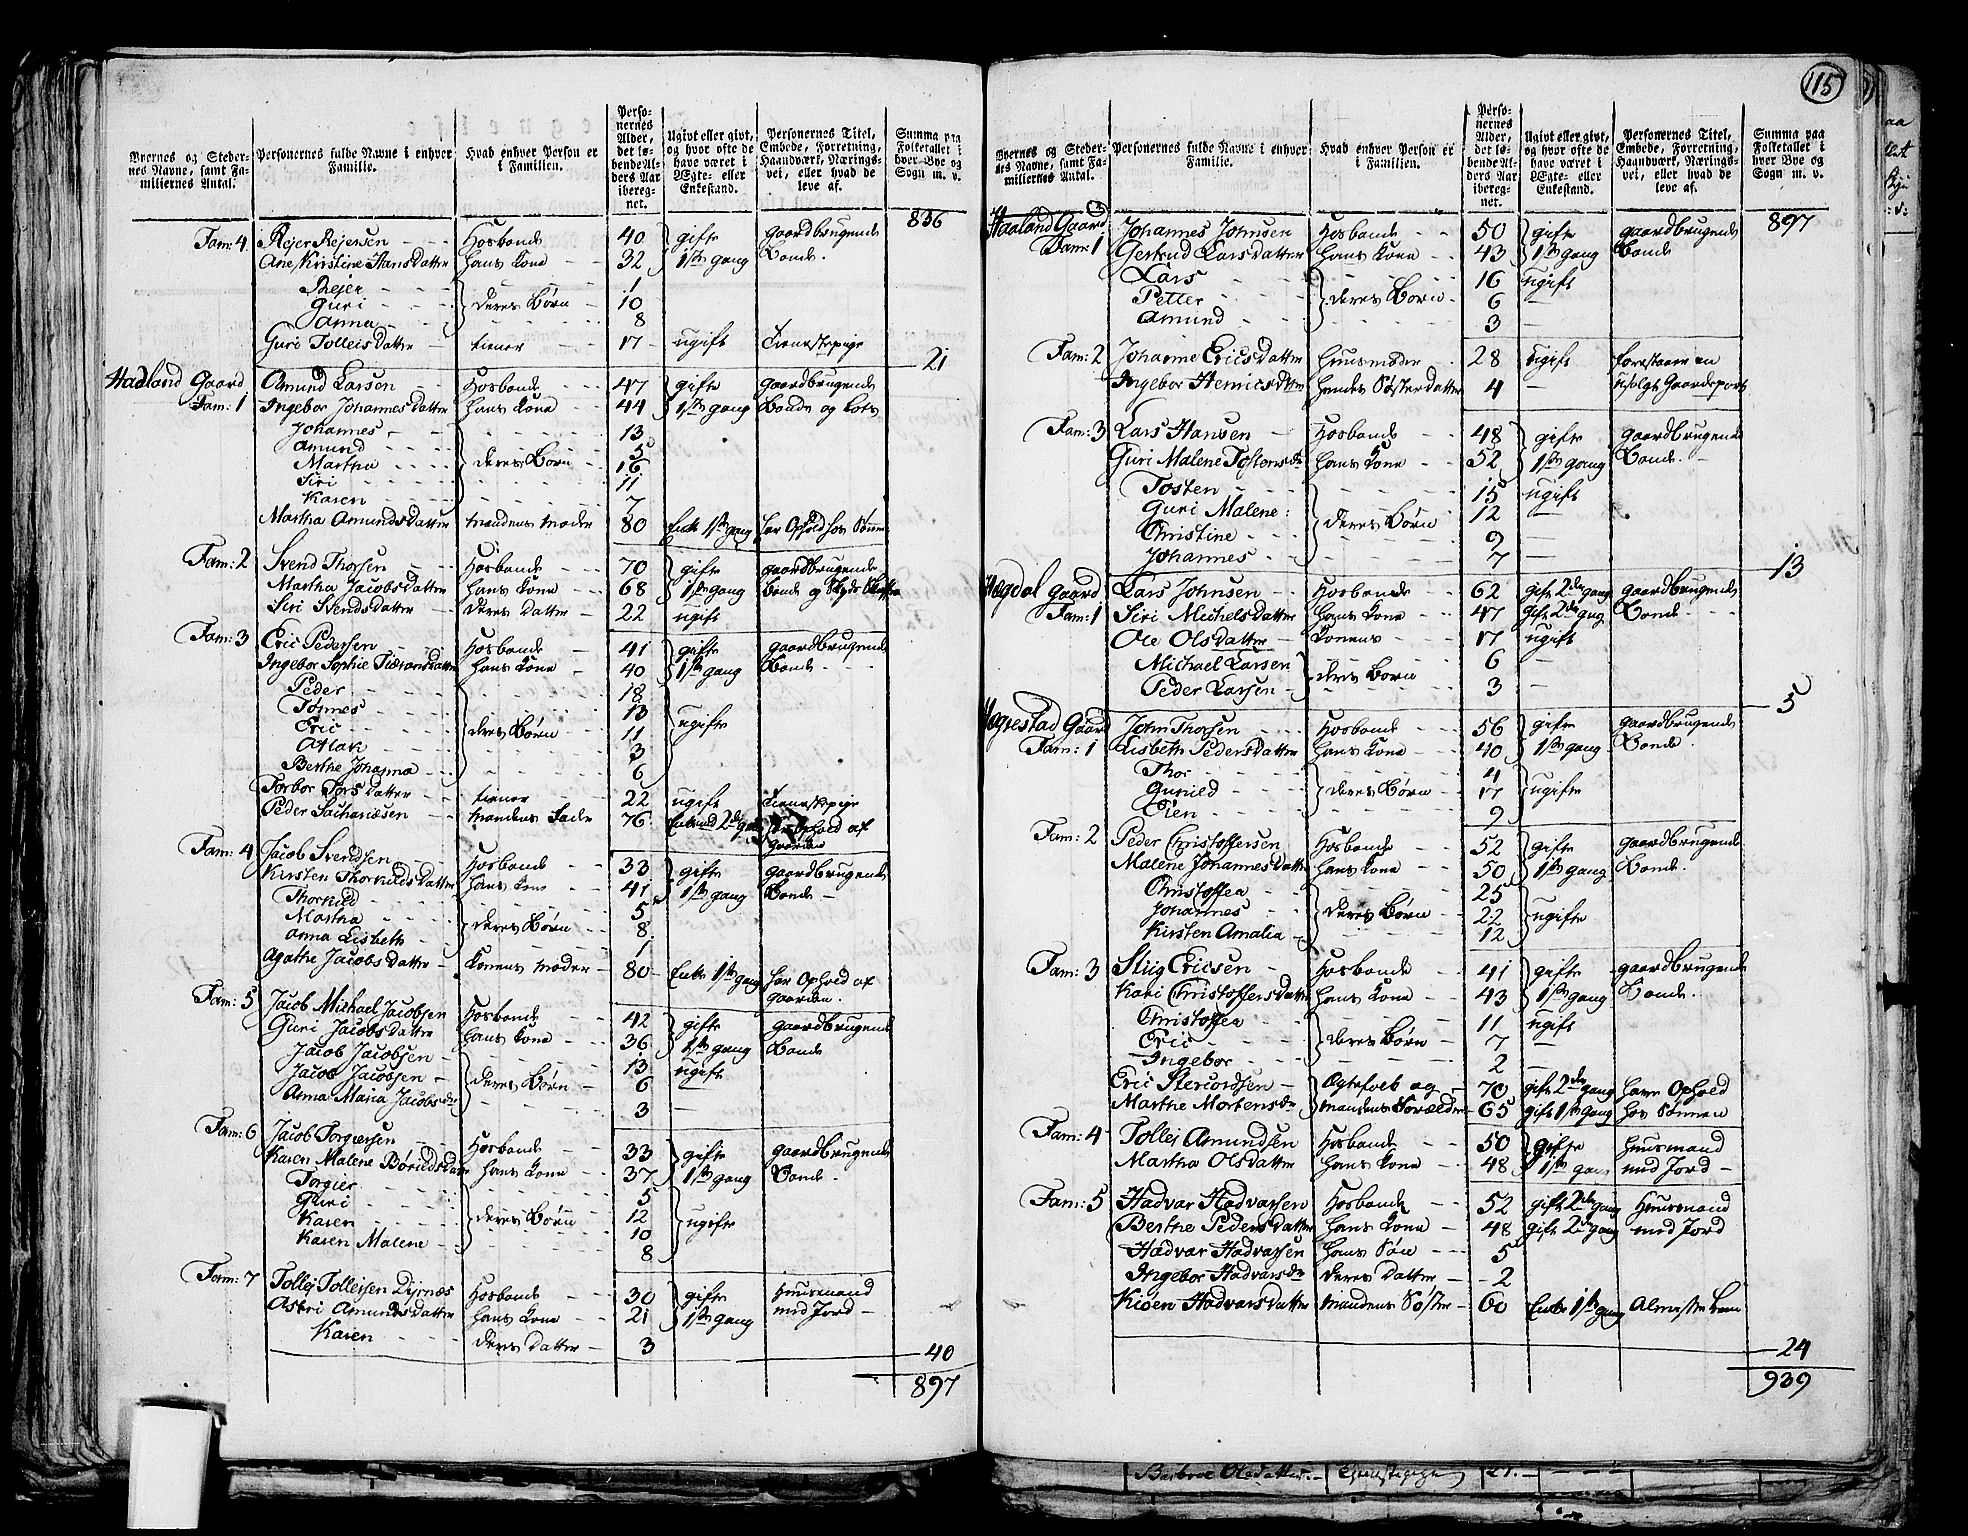 115
Byernes og Steder- nes Navne, samt Fa- miliernes Antal. | Personernes fulde Navne i enhver Familie. | Hvad enhver Person er i Familien. | Perso- nernes Alder, det lø- bende Al- ders Aar ibereg- net. | Ugivt eller givt, og hvor ofte de have været i Ægte- eller Enkestand. | Personernes Titel, Embede, Forretning, Haandværk, Nærings- vei, eller hvad de leve af. | Summa paa Folketallet i hver Bye og Sogn m. v.
836
Fam: 4 Rejer Rejersen Hosbonde 40 gifte gaardbrugende
Ane Kirstine Hans Datter hans Kone 32 1ste gang Bonde.
Rejer 1
Guri deres Børn 10
Anna 8
Guri Tolleis Datter tiener 17 ugift Tienestepige
21
Haaland Gaard Amund Larsen Hosbonde 47 gifte gaardbrugende
Fam: 1 Ingebor Johannes Datter hans Kone 44 1ste gang Bonde og Lots
Johannes 13
Amund 5
Martha deres Børn 16
Siri 11
Karen 7
Martha Amunds Datter Mandens Moder 80 Enke 1ste gang har Ophold hos Sønnen
Fam: 2 Svend Thorsen Hosbonde 70 gifte gaardbrugende
Martha Jacobs Datter hans Kone 68 1ste gang Bonde og
Siri Svends Datter deres Datter 22 ugift
Fam: 3 Eric Pedersen Hosbonde 41 gifte gaardbrugende
Ingebor Sophie hans Kone 40 1ste gang Bonde
Peder 18
Tønnes 13 ugifte
Eric deres Børn 11
Atlak 3
Berthe Johanna 6
Torbor Tors Datter tiener 22 ugift Tienestepige
Peder Sachariæsen Mandens Fader 76 Enkemd 2de gang har Ophold af
Gaarden
Fam: 4 Jacob Svendsen Hosbonde 33 gifte gaardbrugende
Kirsten Thorkilds Datter hans Kone 41 1ste gang Bonde
Thorkild 5
Martha deres Børn 8
Anna Lisbeth 1
Agathe Jacobs Datter Konens Moder 80 Enke 1ste gang har Ophold af
gaarden.
Fam: 5 Jacob Michael Jacobsen Hosbonde 42 gifte gaardbrugende
Guri Jacobs Datter hans Kone 36 1ste gang Bonde
Jacob Jacobsen 13 ugift
Jacob Jacobsen deres Børn 6
Anna Maria Jacobsdr 3
Fam: 6 Jacob Torgiersen Hosbonde 33 gifte gaardbrugende
Karen Malene hans Kone 37 1ste gang Bonde.
Torgier 5
Guri deres Børn 12 ugifte
Karen 10
Karen Malene 8
Fam: 7 Tollej Tollejsen Dyrnæs Hosbonde 30 gifte Huusmand
Astri Amunds Datter hans Kone 21 1ste gang med Jord
Karen deres Datter 3
40
897
Byernes og Steder- nes Navne, samt Fa- miliernes Antal. | Personernes fulde Navne i enhver Familie. | Hvad enhver Person er i Familien. | Perso- nernes Alder, det lø- bende Al- ders Aar ibereg- net. | Ugivt eller givt, og hvor ofte de have været i Ægte- eller Enkestand. | Personernes Titel, Embede, Forretning, Haandværk, Nærings- vei, eller hvad de leve af. | Summa paa Folketallet i hver Bye og Sogn m. v.
897
Haaland Gaard Johannes Johnsen Hosbonde 50 gifte gaardbrugende
Fam: 1 Gertrud Lars Datter hans Kone 43 1ste gang Bonde
Lars 16 ugift
Petter deres Børn 6
Amund 3
Fam: 2 Johanne Erics Datter Huusmoder 28 ugift forestaaer en
Ingebor Henrics Datter hendes Søster Datter 4 usolgt Gaardepart
Fam: 3 Lars Hansen Hosbonde 48 gifte gaardbrugende
Guri Malene Tostensdr hans Kone 52 1ste gang Bonde.
Tosten 15 ugift
Guri Malene deres Børn 12
Christine 9
Johannes 7
13
Hegdal Gaard Lars Johnsen Hosbonde 62 gift 2de gang gaardbrugende
Fam: 1 Siri Michels Datter hans Kone 47 gift 2de gang Bonde
Ole Ols Datter Konens 17 ugift
Michael Larsen 6
deres Børn
Peder Larsen 3
5
Hegrestad Gaard John Thorsen Hosbonde 56 gifte gaardbrugende
Fam: 1 Lisbeth Peders Datter hans Kone 40 1ste gang Bonde.
Thor 4
Gunild deres Børn 17 ugifte
9
Fam: 2 Peder Christoffersen Hosbonde 52 gifte gaardbrugende
Malene Johannes Datter hans Kone 50 1ste gang Bonde.
Christoffer 25
Johannes deres Børn 22 ugifte
Kirsten Amalia 12
Fam: 3 Stiig Ericsen Hosbonde 41 gifte gaardbrugende
Kari Christoffers Datter hans Kone 43 1ste gang Bonde.
Christoffer 11 ugift
Eric deres Børn 7
Ingebor 2
Eric Ægtefolk og 70 gift 2de gang have Ophold
Marthe Mortensdr Mandens Forældre 65 gift 1ste gang hos Sønnen
Fam: 4 Tollej Amundsen Hosbonde 50 gifte Huusmand
Martha Ols Datter hans Kone 48 1ste gang med Jord
Fam: 5 Hadvar Hadvarsen Hosbonde 52 gift 2de gang Huusmand
Berthe Peders Datter hans Kone 48 gift 2de gang med Jord
Hadvar Hadvarsen hans Søn 5
Ingebor Hadvarsdr deres Datter 2
Hadvars Datter Mandens Søster 60 Enke 1ste gang Almisse Lem
24
939
Ols Datter Tjenestepige 21.